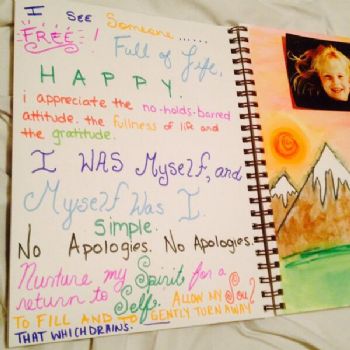 I SEE Someone......
FREE! Full of Life.
HAPPY.
i appreciate the no-holds-barred
attitude. the fullness of life and
the gratitude.
I WAS Myself, and
Myself Was I.
Simple.
No Apologies. No Apologies.
Nurture my Spirit for a
return to Self. ALLOW MY
TO FILL AND TO GENTLY TURN AWAY
THAT WHICH DRAINS.